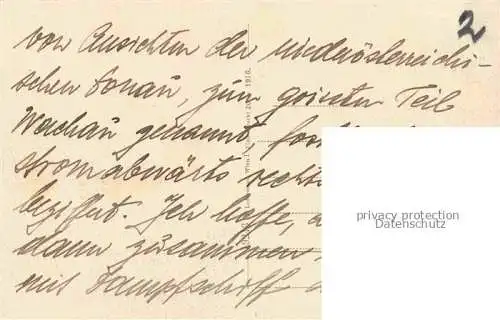 2
von Ansichten der niederösterreichi-
schen Donau, zum grössten Teil
Wachau genannt,
stromabwärts
beziffert. Ich hoffe,
dann zusammen
mit Dampfschiff
privacy protection
Datenschutz